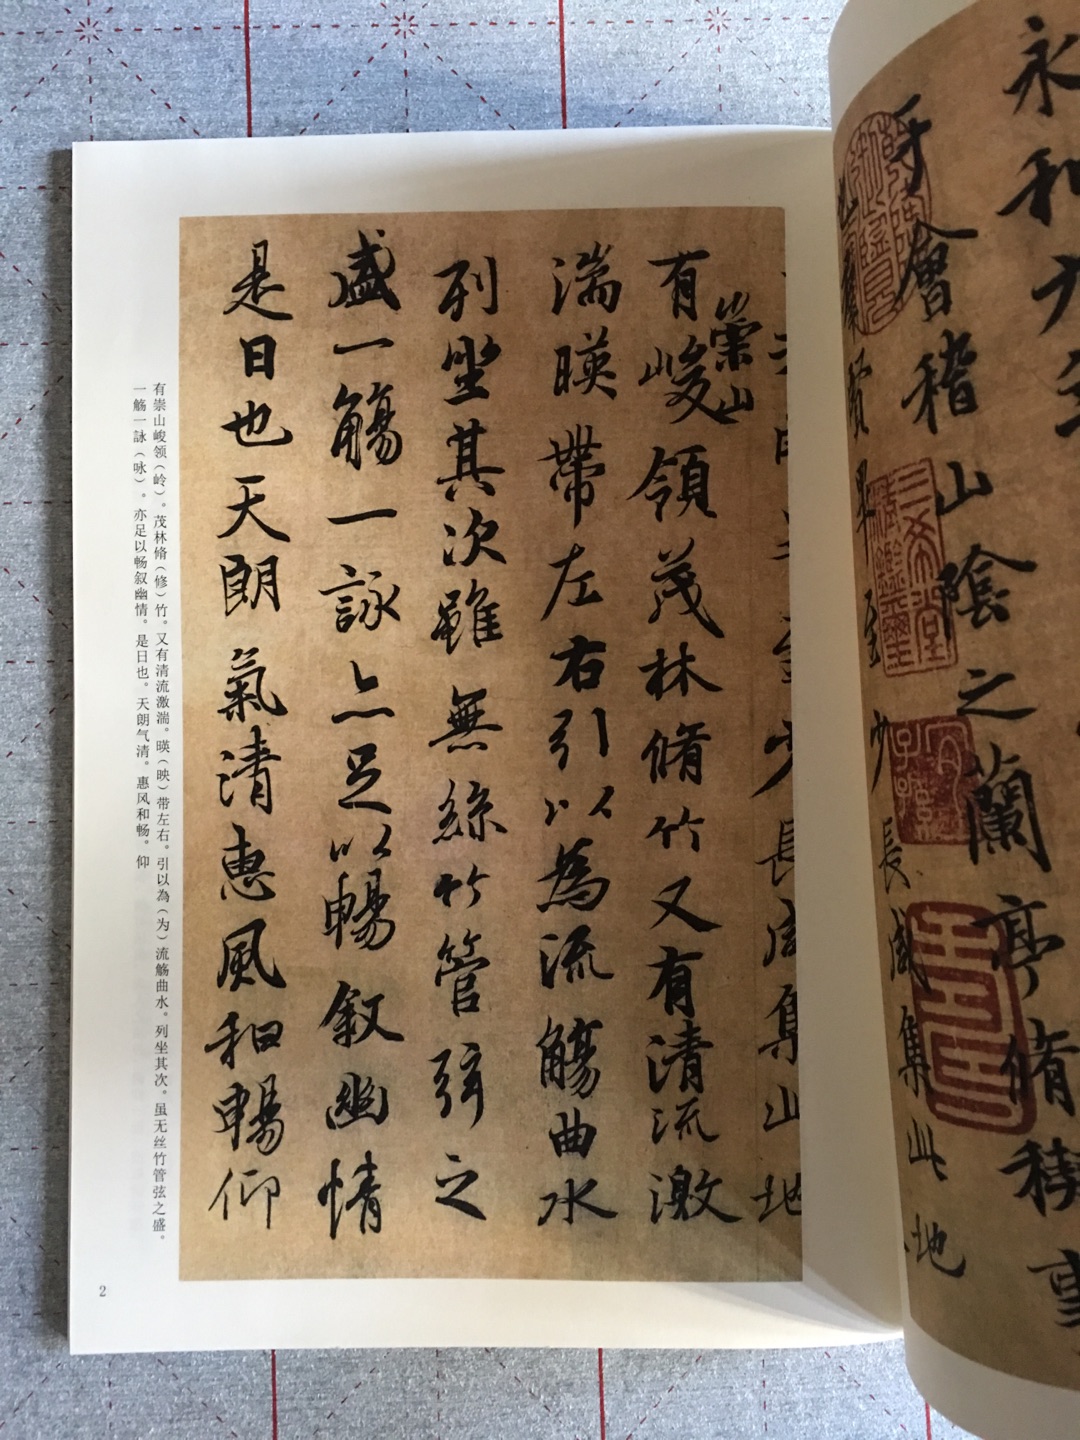 永和九年
于會稽山陰之蘭亭脩稧事
也羣賢畢至少長咸集此地
有峻領茂林脩竹又有清流激
崇山
湍暎帶左右引以為流觴曲水
列坐其次雖無絲竹管弦之
盛一觴一詠亦足以暢叙幽情
是日也天朗氣清惠風和暢仰
有崇山峻领（岭）。茂林脩（修）竹。又有清流激湍。暎（映）带左右。引以為（为）流觞曲水。列坐其次。虽无丝竹管弦之盛。
一觞一詠（咏）。亦足以畅叙幽情。是日也。天朗气清。惠风和畅。仰
2